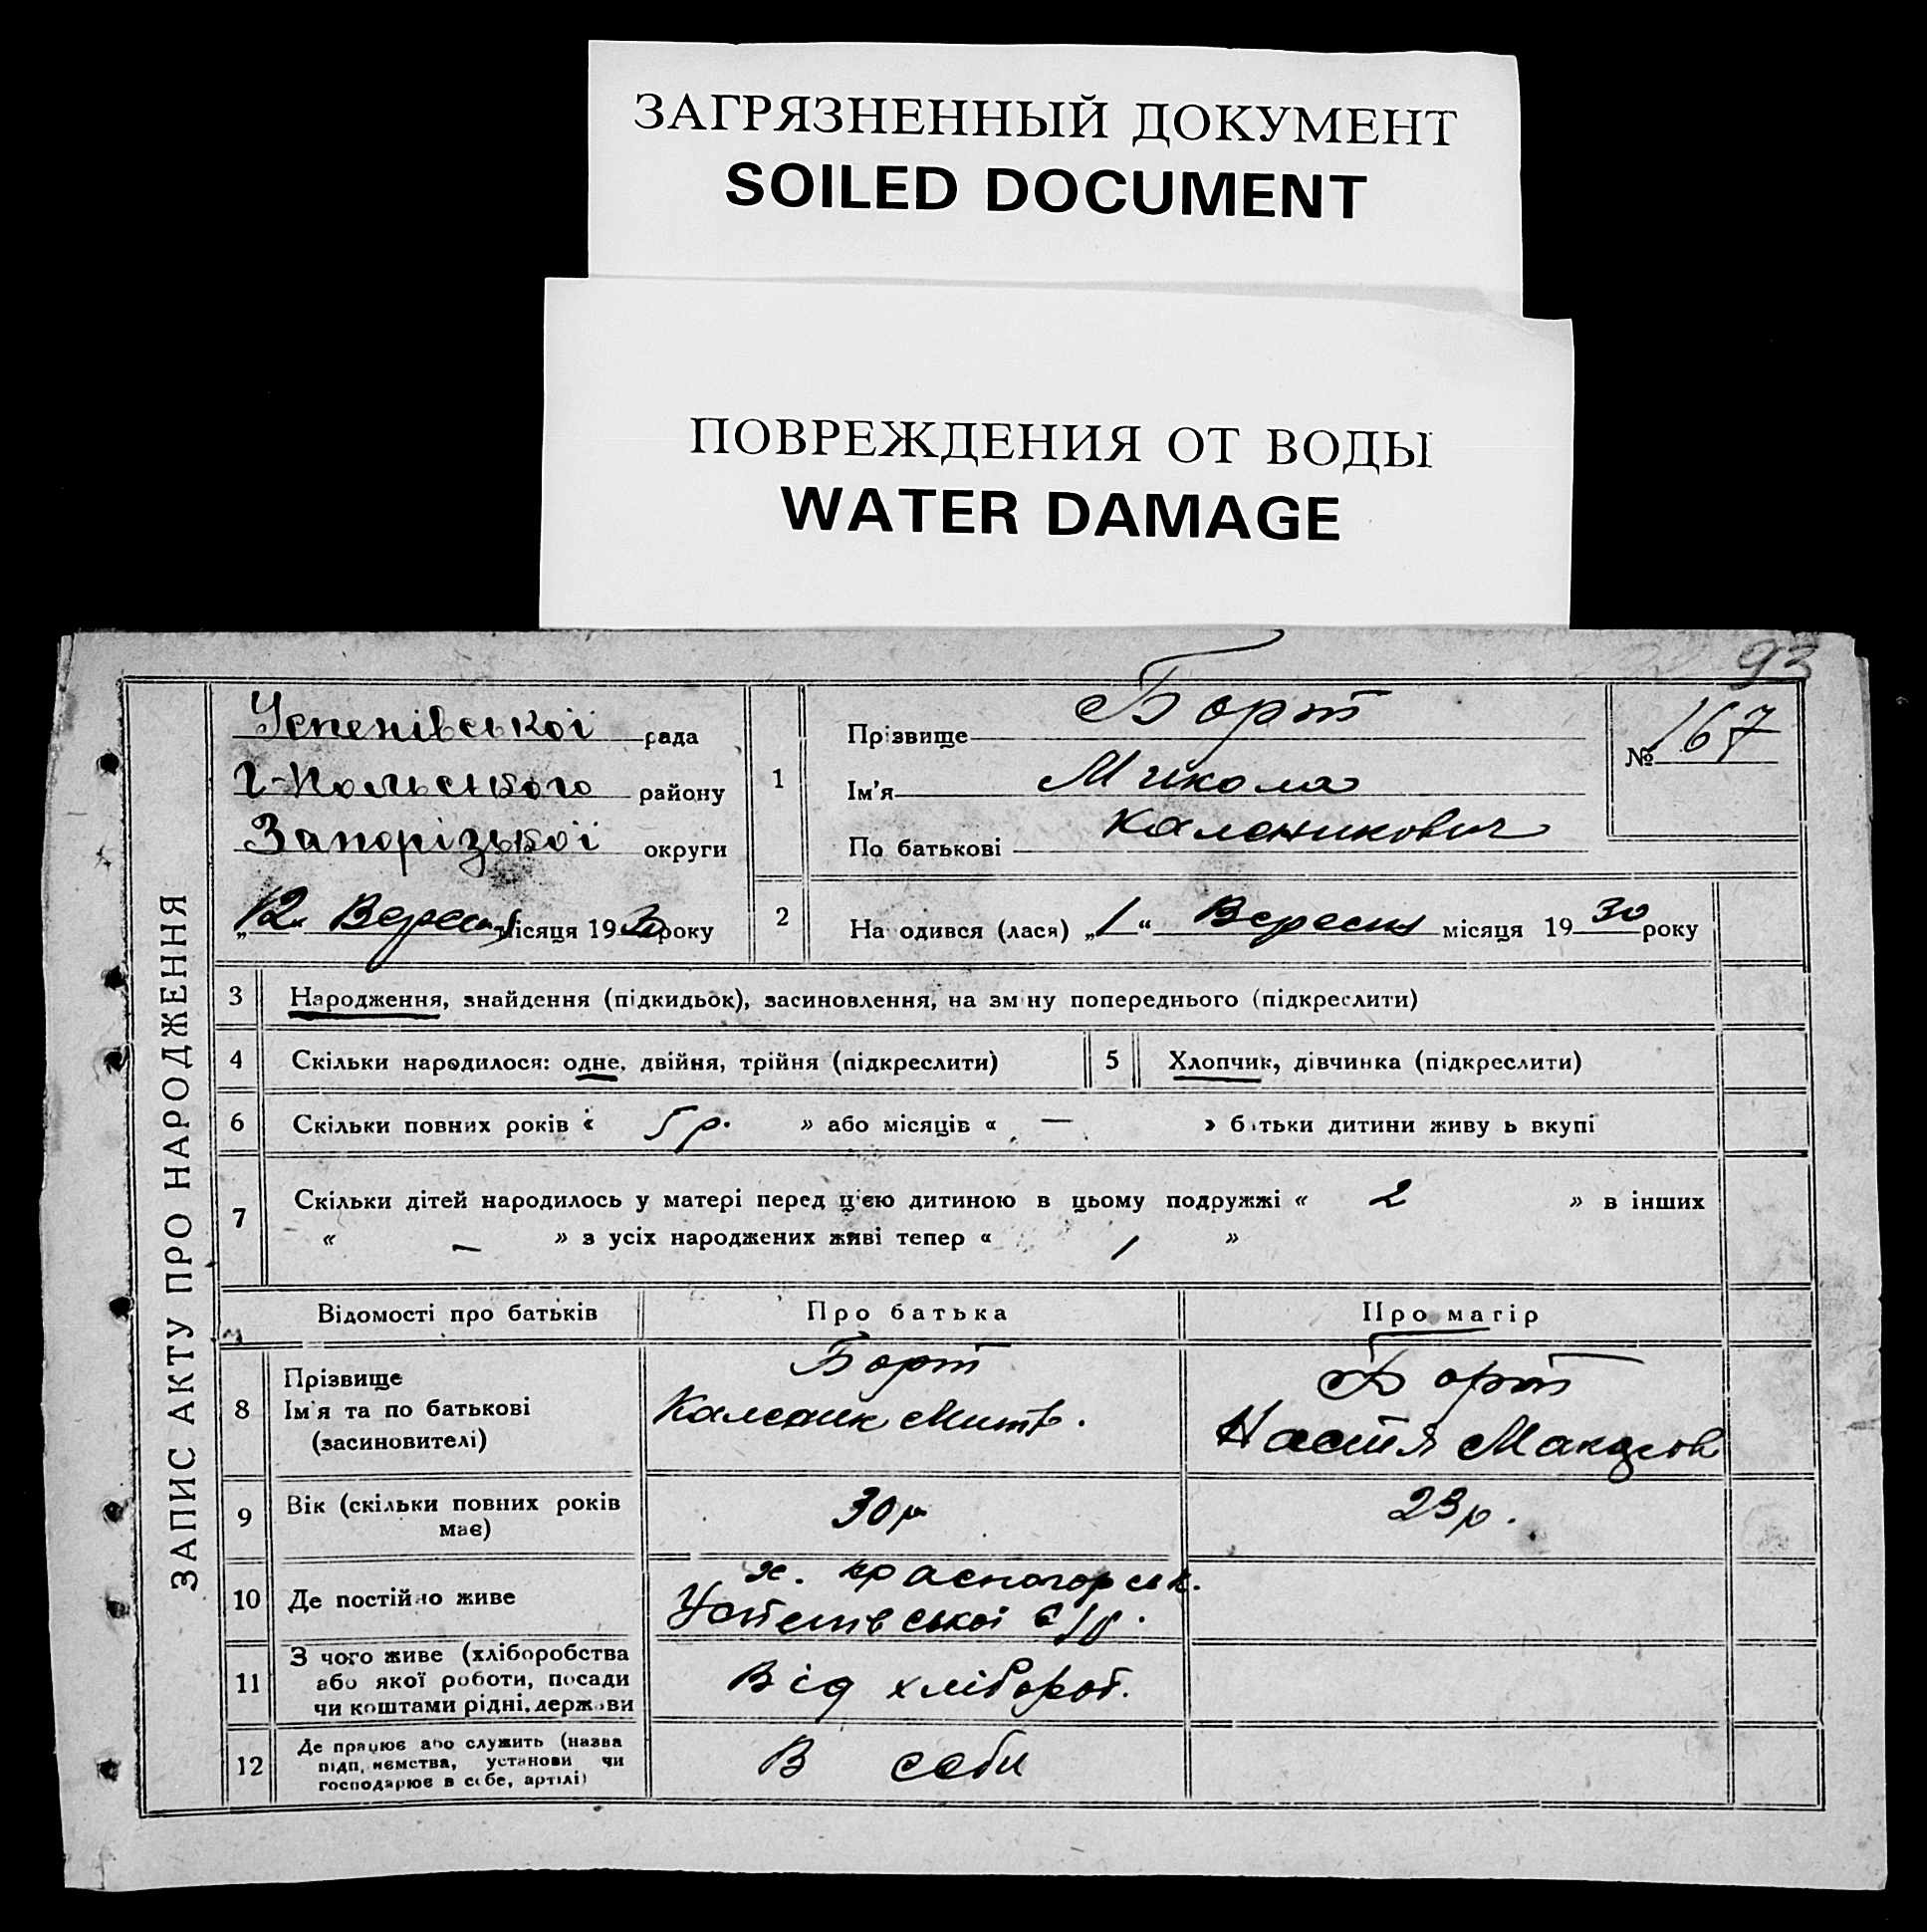 ЗАГРЯЗНЕННЫЙ ДОКУМЕНТ
SOILED DOCUMENT
ПОВРЕЖДЕНИЯ ОТ ВОДЫ
WATER DAMAGE
93
ЗАПИС АКТУ ПРО НАРОДЖЕННЯ
Успенівської рада
Г-Польського району
Запорізької округи
„12" Вересня місяця 1930 року
1
Прізвище Борт
Ім'я Микола
По батькові Калеником
№ 167
2 На одився (лася) „1“ Вересня місяця 1930 року
3 Народження, знайдення (підкидьок), засиновлення, на зміну попереднього (підкреслити)
4 Скільки народилося: одне, двійня, трійня (підкреслити)
5 Хлопчик, дівчинка (підкреслити)
6 Скільки повних років « 5 р. » або місяців « — » батьки дитини живу ь вкупі
7 Скільки дітей народилось у матері перед цією дитиною в цьому подружжі « 2 » в інших
« — » з усіх народжених живі тепер « 1 »
Відомості про батьків Про батька Про матір
8 Прізвище
Ім'я та по батькові
(засиновителі)
Борт
Каленик Митв.
Борт
Настя
9 Вік (скільки повних років
має)
30 р
23 р.
10 Де постійно живе
х. Красногорськ.
Успенівської с/р.
11 З чого живе (хліборобства
або якої роботи, посади
чи коштами рідні, держави
Від хлібороб.
12 Де працює або служить (назва
підприємства, установи чи
господарює в себе, артілі)
В себи